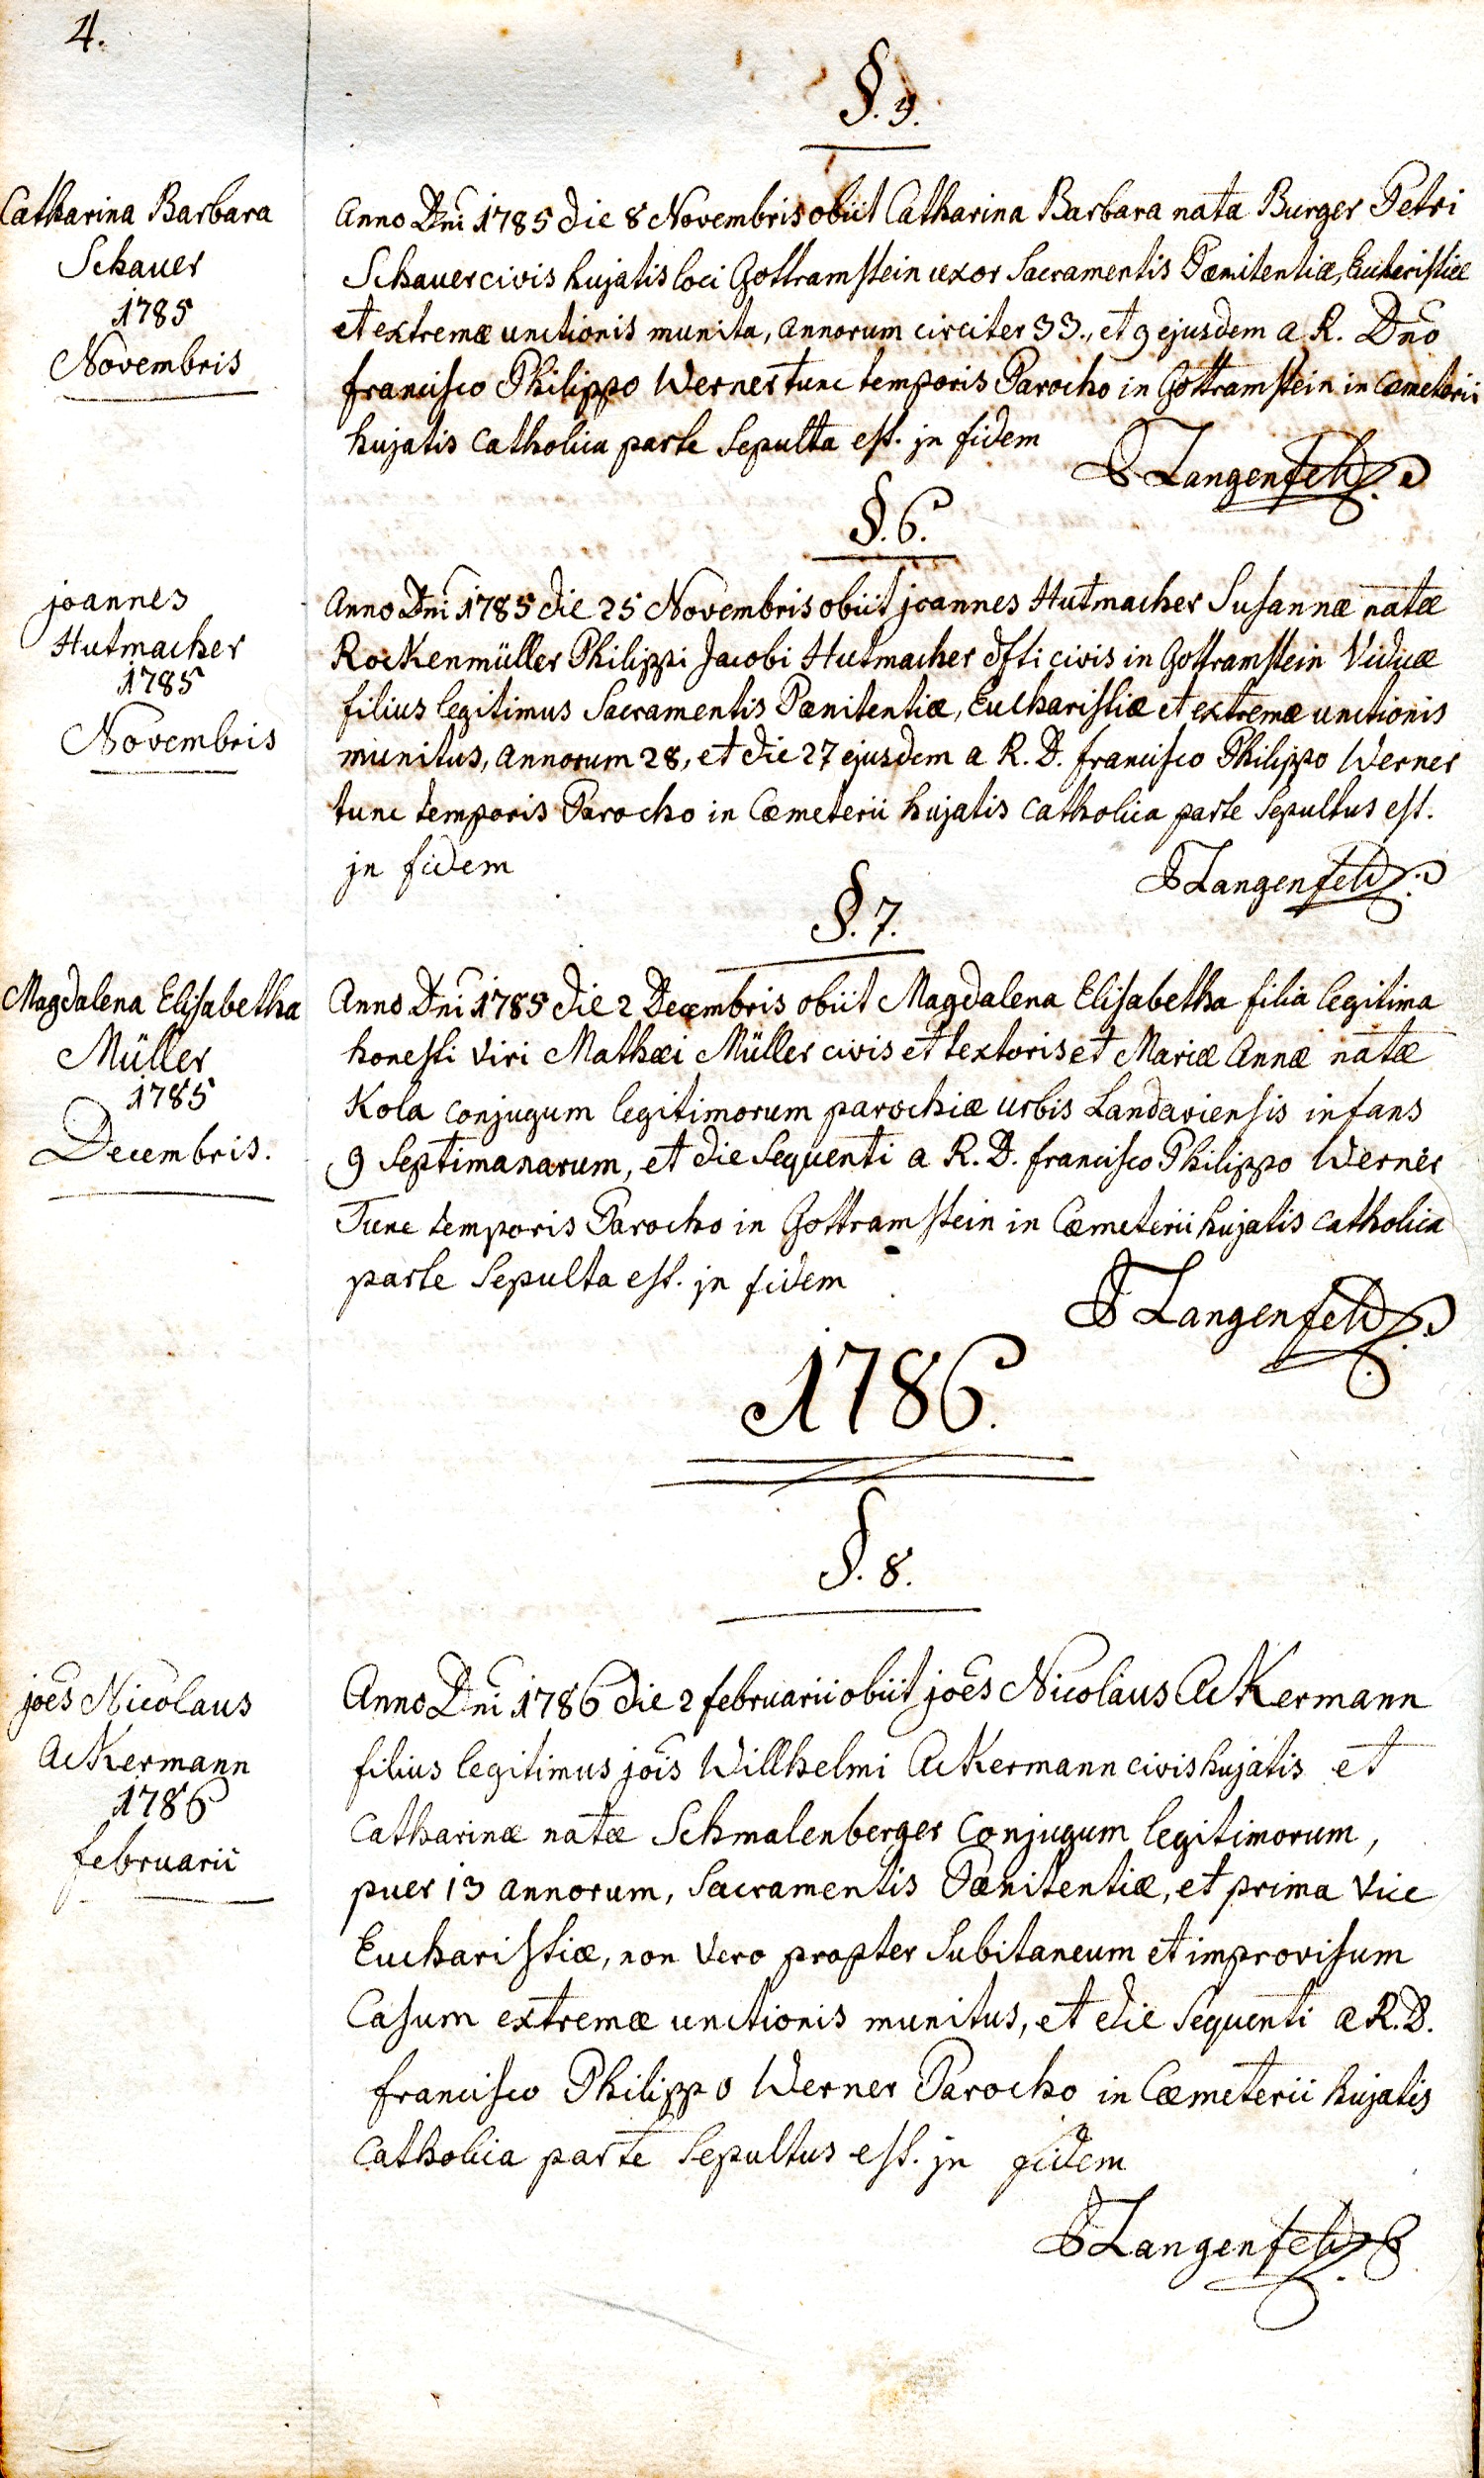 4.
§. 5.
Catharina Barbara
Schauer
1785
Novembris
Anno Dni 1785 die 8 Novembris obiit Catharina Barbara nata Burger Petri
Schauer civis hujatis loci Gottramstein uxor Sacramentis Pœnitentiæ, Eucharistiæ
et extremæ unctionis munita, annorum circiter 33., et 9 ejusdem a R. Dno
francisco Philippo Werner tunc temporis Parocho in Gottramstein in Cœmeterii
hujatis catholica parte Sepulta est. jn fidem
Langenfeld
§. 6.
joannes
Hutmacher
1785
Novembris
Anno Dni 1785 die 25 Novembris obiit joannes Hutmacher Susannæ natæ
Rockenmüller Philippi Jacobi Hutmacher dfti civis in Gottramstein Viduæ
filius legitimus Sacramentis Pœnitentiæ, Eucharistiæ et extremæ unctionis
munitus, annorum 28, et die 27 ejusdem a R. D. francisco Philippo Werner
tunc temporis Parocho in Cœmeterii hujatis catholica parte Sepultus est.
jn fidem
Langenfeld
§. 7.
Magdalena Elisabetha
Müller
1785
Decembris.
Anno Dni 1785 die 2 Decembris obiit Magdalena Elisabetha filia legitima
honesti viri Mathæi Müller civis et textoris et Mariæ Annæ natæ
Kola conjugum legitimorum parochiæ urbis Landaviensis infans
9 Septimanarum, et die Sequenti a R. D. francisco Philippo Werner
Tunc temporis Parocho in Gottramstein in Cœmeterii hujatis catholica
parte Sepulta est. jn fidem
Langenfeld
1786.
§. 8.
joes Nicolaus
Ackermann
1786
februarii
Anno Dni 1786 die 2 februarii obiit joes Nicolaus Ackermann
filius legitimus jois Willhelmi Ackermann civis hujatis et
Catharinæ natæ Schmalenberger Conjugum legitimorum,
puer 13 annorum, Sacramentis Pœnitentiæ, et prima vice
Eucharistiæ, non vero propter Subitaneum et improvisum
Casum extremæ unctionis munitus, et die Sequenti a R. D.
francisco Philippo Werner Parocho in Cœmeterii hujatis
Catholica parte Sepultus est. jn fidem
Langenfeld